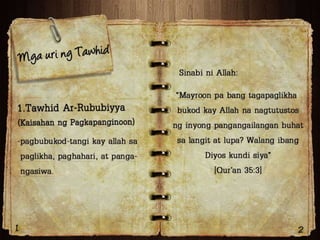 Mga uri ng Tawhid
1.Tawhid Ar-Rububiyya
(Kaisahan ng Pagkapanginoon)
-pagbubukod-tangi kay allah sa
paglikha, paghahari, at panga-
ngasiwa.
1
Sinabi ni Allah:
"Mayroon pa bang tagapaglikha
bukod kay Allah na nagtutustos
ng inyong pangangailangan buhat
sa langit at lupa? Walang ibang
Diyos kundi siya"
[Qur'an 35:3]
2